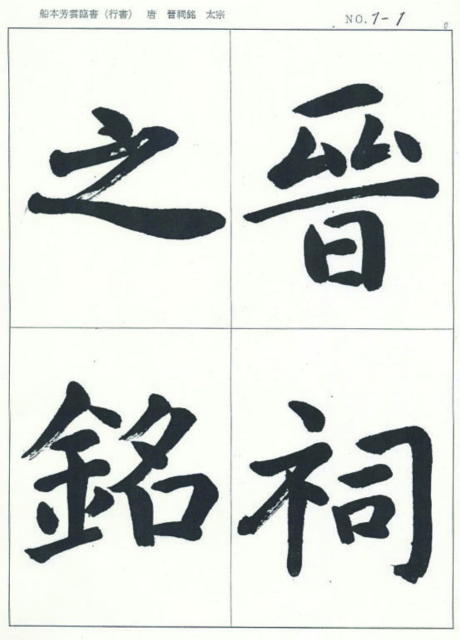 船本芳雲臨書（行書） 唐 晉祠銘 太宗
NO. 1-1
晉祠
之銘